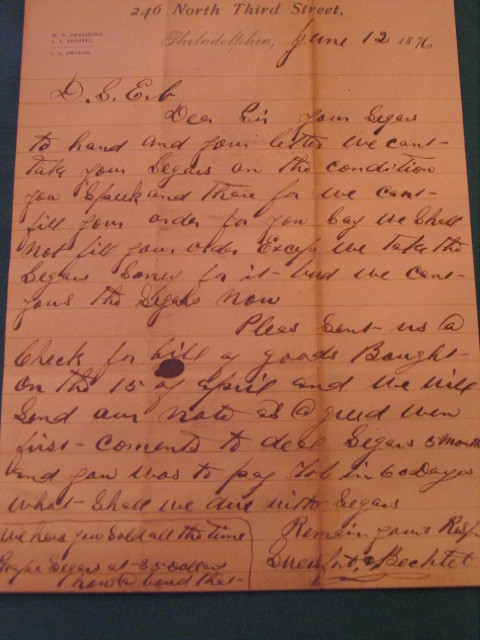 246 North Third Street,
Philadelphia, June 12 1876
D. S. Erb
Dear Sir your Segars
to hand and your letter we cant
take your Segars on the condition
you Speak and thare for we cant
fill your order for you Say we Shall
not fill your order Except we take the
Segars Sorrey for it but we cant
yous the Segars Now
Pleas Sent us a
Check for bill of goods Bought
on the 15 of April and we will
Send our Note as agreed wen
first comenst to deal Segars 3 months
and you was to pay Tob in 60 Days
what Shall we due with Segars
we hear you Sold all the time
Segars at 35 Dollars
how a bout that
Remain yours Resp
& Bechtel